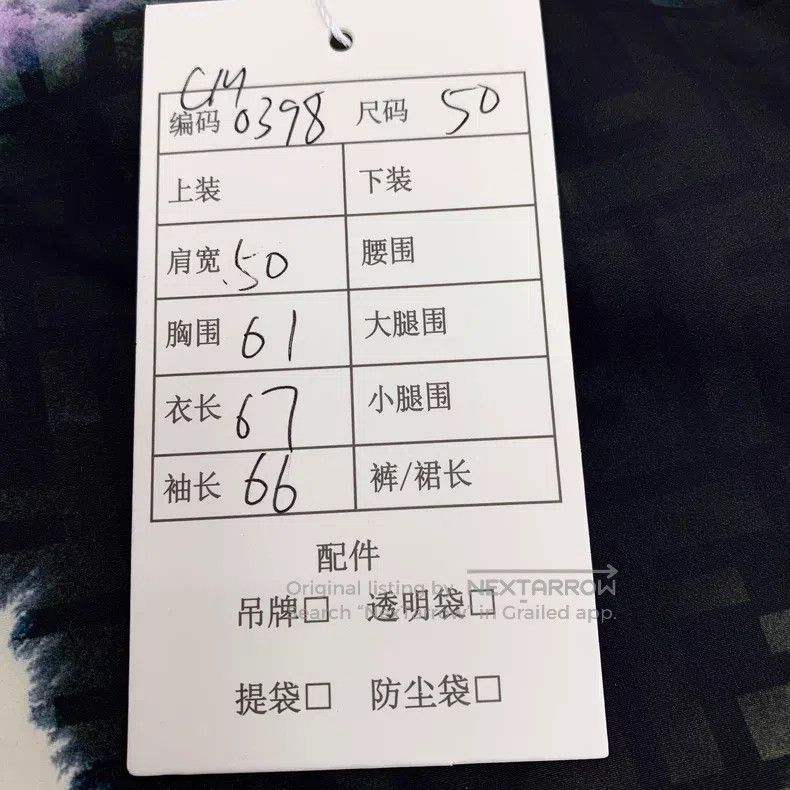 CM
编码 0398 尺码 50
上装 下装
肩宽 50 腰围
胸围 61 大腿围
衣长 67 小腿围
袖长 66 裤/裙长
配件
Original listing by NEXTARROW
吊牌□ 透明袋□
Search "NextArrow" in Grailed app.
提袋□ 防尘袋□